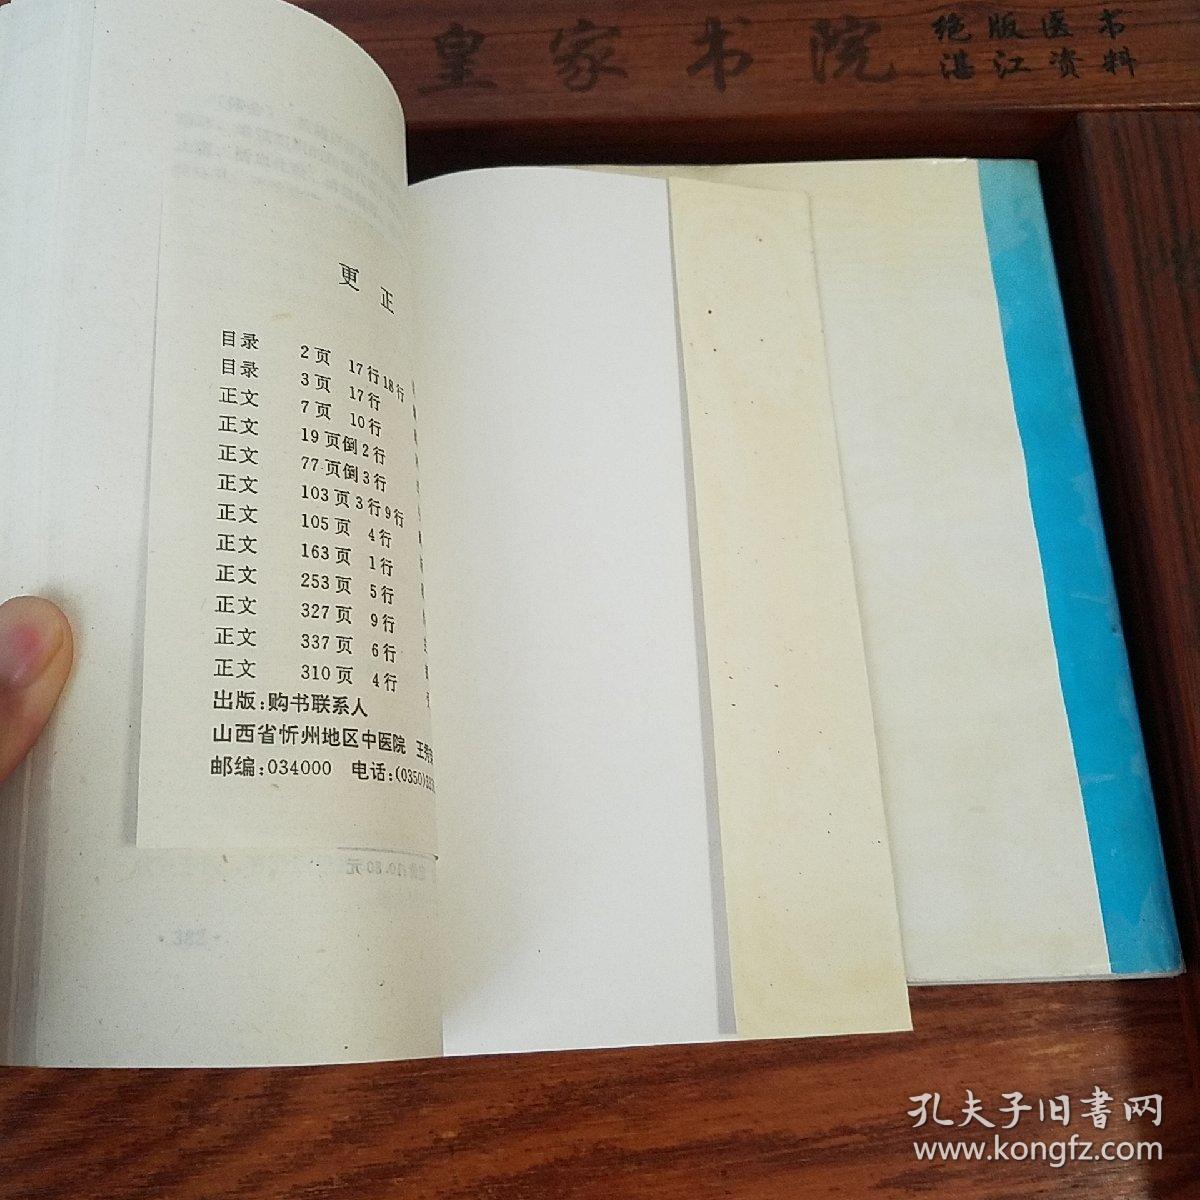 皇家书院
绝版医书
湛江资料
更正
目录 2页 17行18行
目录 3页 17行
正文 7页 10行
正文 19页倒2行
正文 77页倒3行
正文 103页3行9行
正文 105页 4行
正文 163页 1行
正文 253页 5行
正文 327页 9行
正文 337页 6行
正文 310页 4行
出版:购书联系人
山西省忻州地区中医院 王
邮编:034000 电话:(0350)
孔夫子旧書网
www.kongfz.com